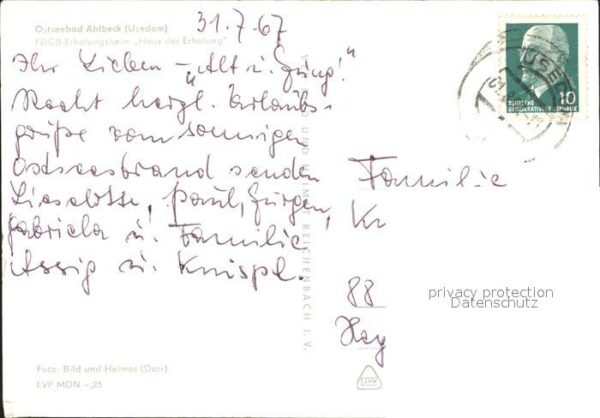 Ostseebad Ahlbeck (Usedom)
FDGB-Erholungsheim „Haus der Erholung"
31.7.67
Ihr Lieben – „Alt u. Jung!"
Recht herzl. Urlaubs-
grüße vom sonnigen
Ostseestrand senden
Lieselotte, Paul, Jürgen,
Gabriela u. Familie
u. Knispel.
Familie
Kr
88
privacy protection
Datenschutz
BILD UND HEIMAT REICHENBACH I. V.
Foto: Bild und Heimat (Darr)
EVP MDN –,25
10
DEUTSCHE
DEMOKRATISCHE REPUBLIK
USEDOM